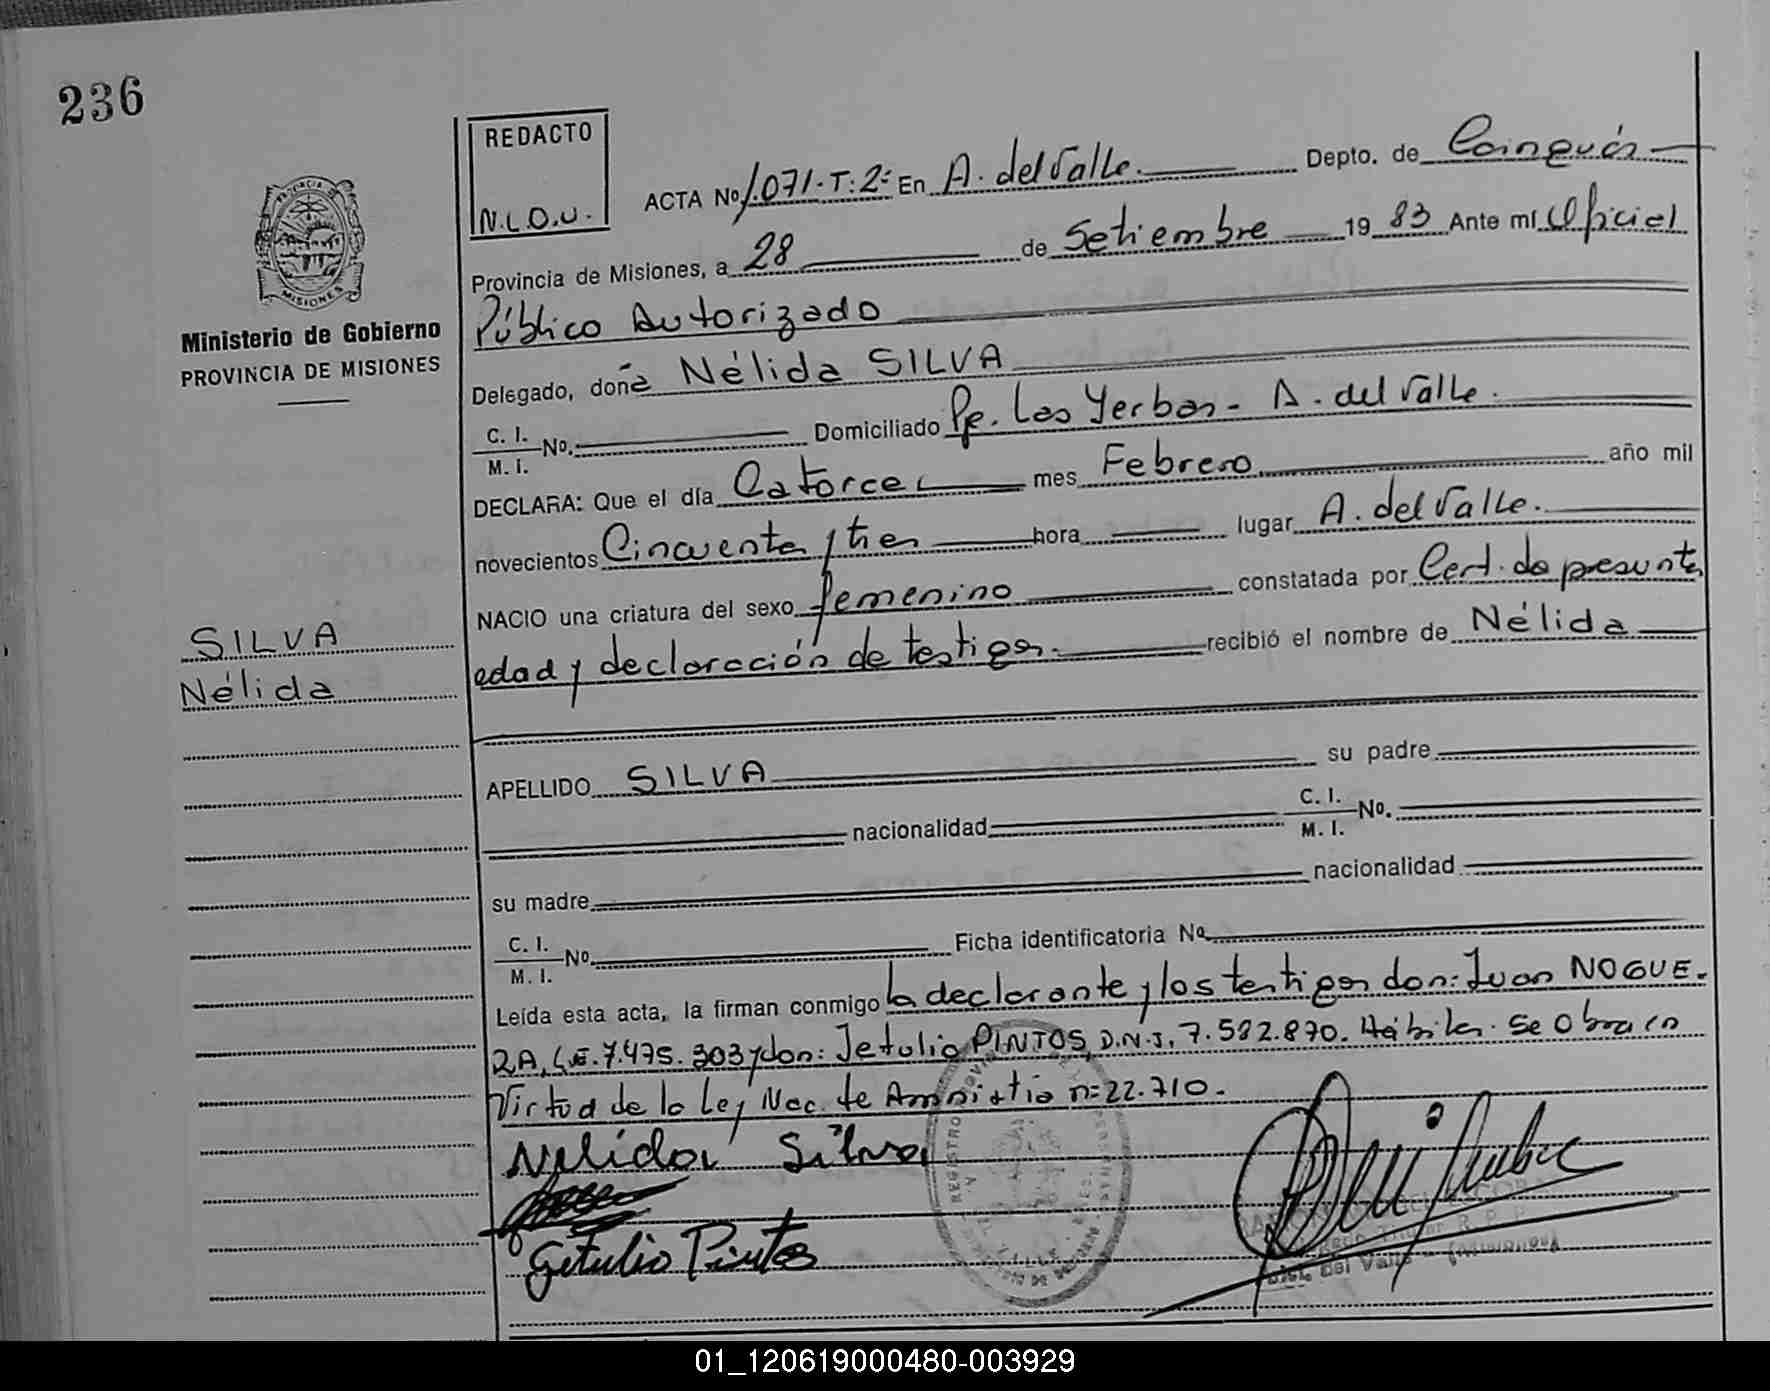 236
REDACTO
N.L.O.U.
ACTA No 1.071.T:2º En A. del Valle. Depto. de Cainguás
Provincia de Misiones, a 28 de Setiembre 1983 Ante mí Oficial
Público Autorizado
Ministerio de Gobierno
PROVINCIA DE MISIONES
Delegado, doña Nélida SILVA
C. I.
M. I. No. Domiciliado Pje. Las Yerbas - A. del Valle.
DECLARA: Que el día Catorce mes Febrero año mil
novecientos Cincuenta y tres hora lugar A. del Valle.
NACIO una criatura del sexo femenino constatada por Cert. de presunta
SILVA
Nélida
edad y declaración de testigos. recibió el nombre de Nélida
APELLIDO SILVA su padre
nacionalidad C. I.
M. I. No.
su madre nacionalidad
C. I.
M. I. No. Ficha identificatoria No
Leída esta acta, la firman conmigo la declarante y los testigos don: Juan NOGUE-
RA, L.E. 7.475.303 y don: Jetulio PINTOS, D.N.I. 7.582.870. Hábiles. Se Obra en
Virtud de la Ley Nac. de Amnistia nº 22.710.
Nelida Silva
Getulio Pintos
01_120619000480-003929